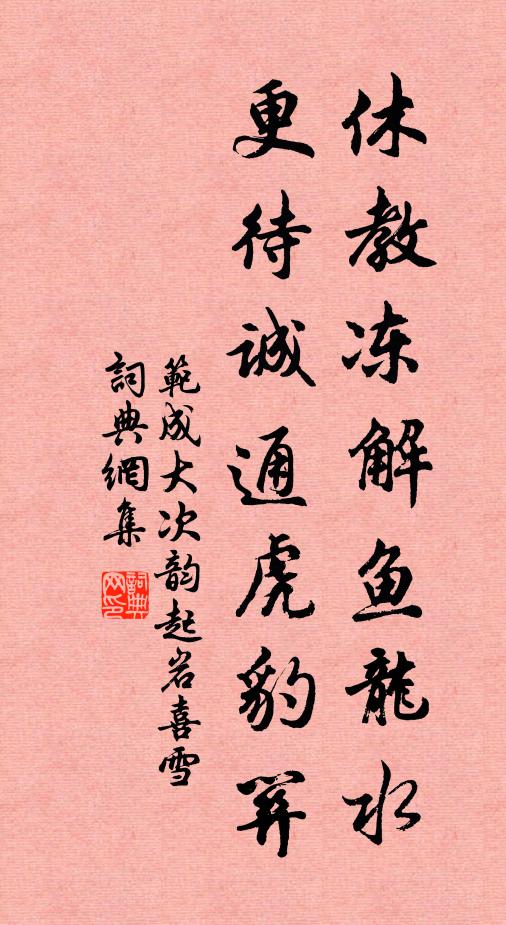 休教冻解鱼龍水
更待诚通虎豹関
範成大次韵起岩喜雪
詞典網集
詞典网印